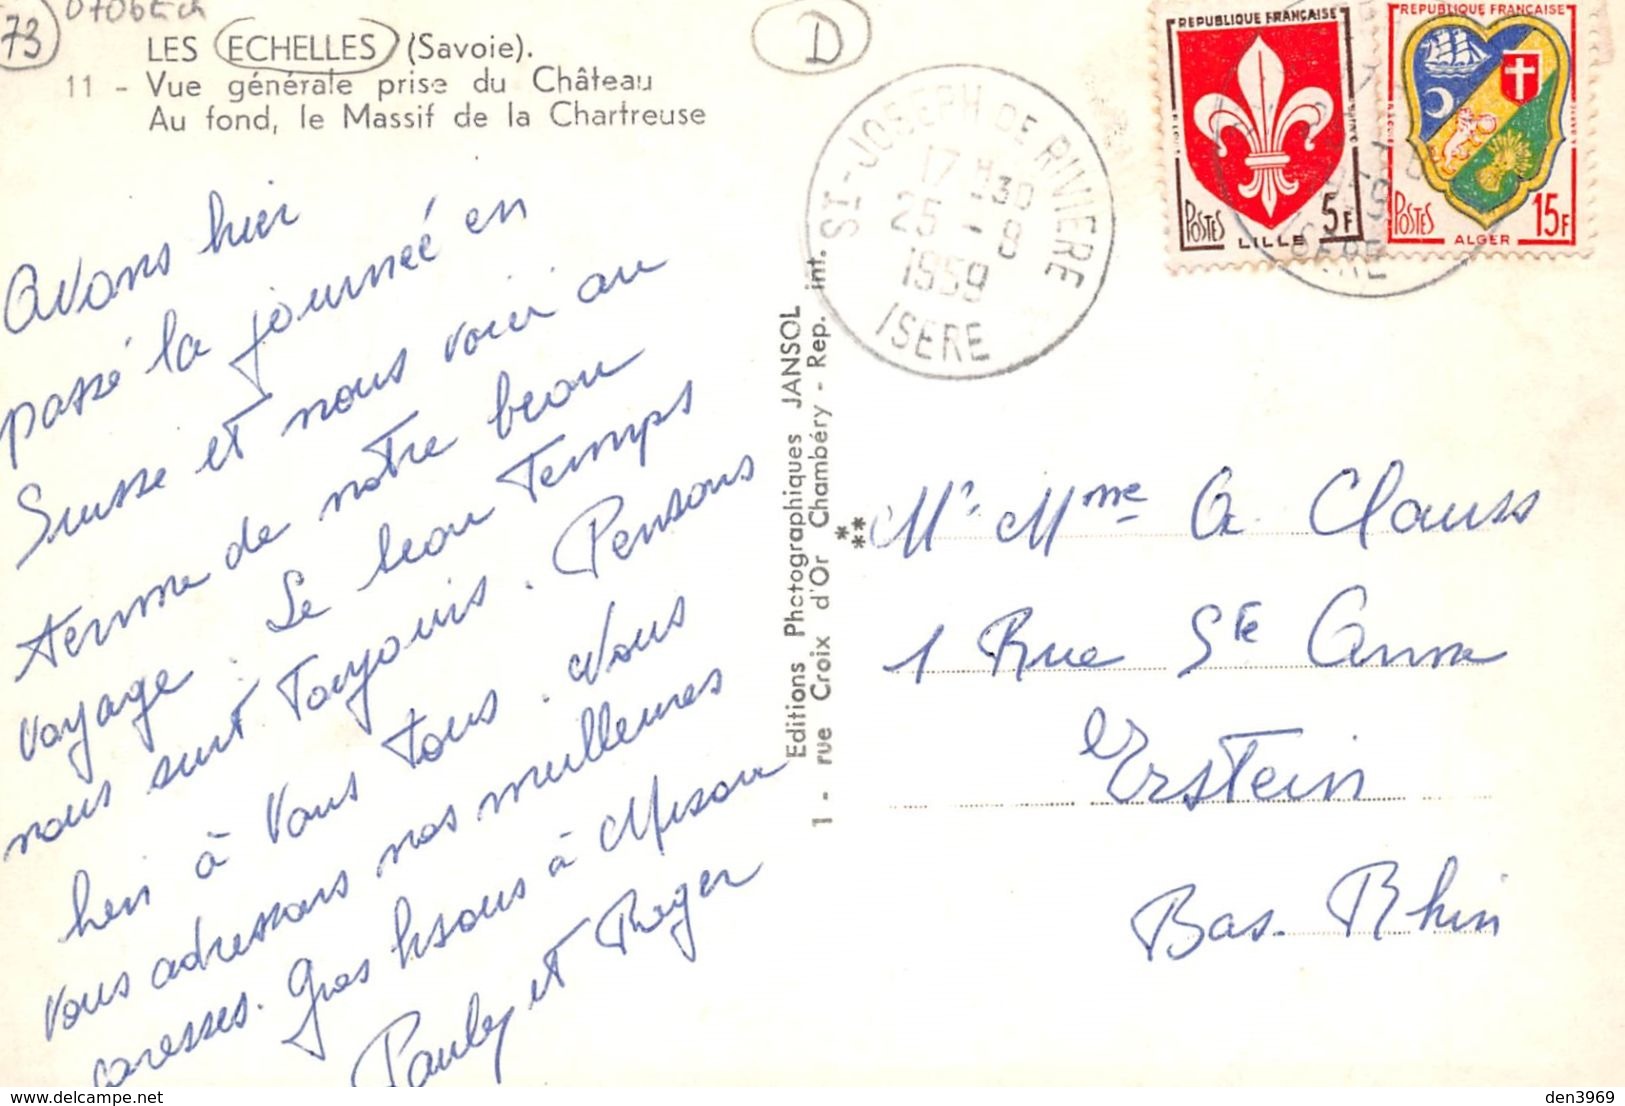 73
LES ECHELLES (Savoie).
11 - Vue générale prise du Château
Au fond, le Massif de la Chartreuse
D
ST-JOSEPH DE RIVIERE
17 H30
25 - 8
1959
ISERE
REPUBLIQUE FRANÇAISE
POSTES
LILLE
5F
REPUBLIQUE FRANÇAISE
POSTES
ALGER
15F
Avons hier
passé la journée en
Suisse et nous voici au
terme de notre beau
voyage. Le beau temps
nous suit toujours. Pensons
bien à vous tous. Vous
vous adressons nos meilleures
caresses. Gros bisous à
Pauly et Roger
Editions Photographiques JANSOL
1 - rue Croix d'Or Chambéry - Rep. int.
Mr Mme G Clauss
1 Rue Ste Anne
Erstein
Bas-Rhin
delcampe.net
den3969